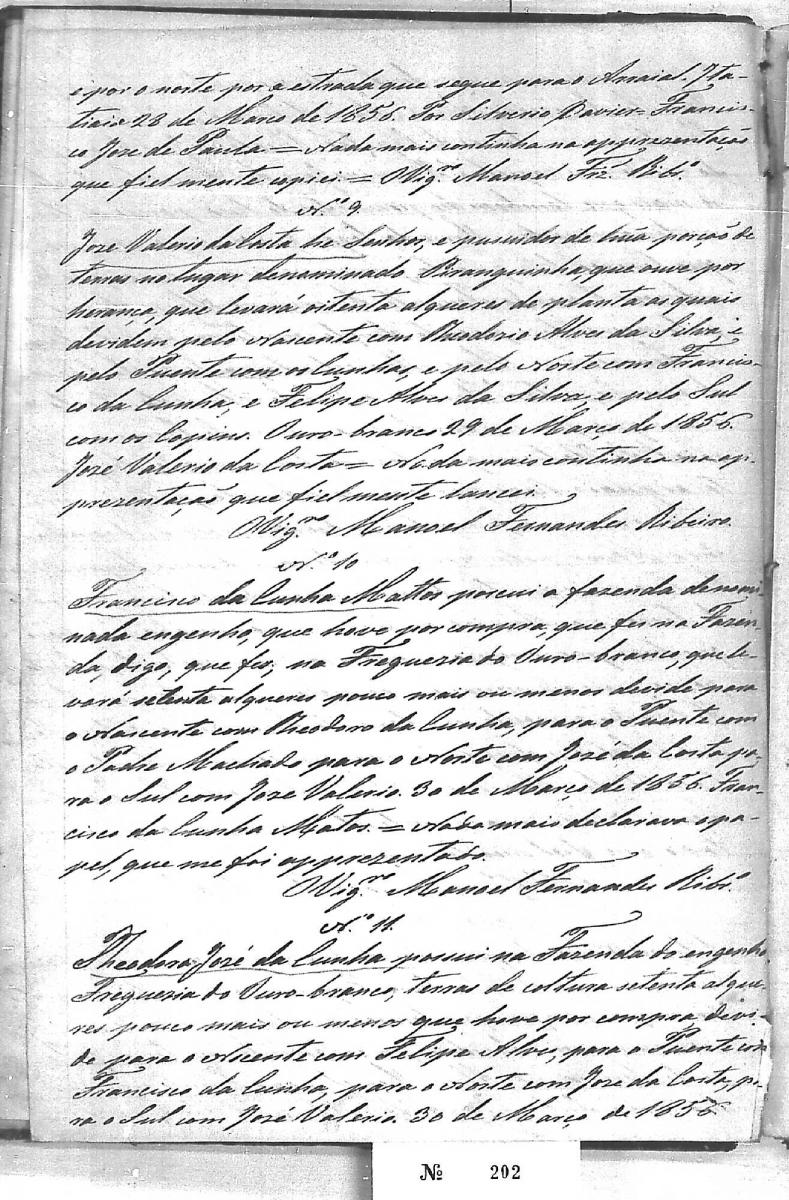 e por o norte por a estrada que segue para o Arraial. Ita-
tiaia 28 de Março de 1856. Por Silverio Xavier = Francis-
co Jose de Paula = Nada mais continha na apprezentaçaõ
que fielmente copiei = O Vigr.º Manoel Frz. Ribr.º
N.º 9.
Joze Valerio da Costa he Senhor, e pussuidor de huã porçaõ de
terras no lugar denaminado Piranguinha, que ouve por
herança, que levará oitenta alqueres de planta as quais
devidem pelo Nascente com Theodorio Alves da Silva, e
pelo Puente com os Cunhas, e pelo Norte com Francis-
co da Cunha, e Felipe Alves da Silva, e pelo Sul
com os Copins. Ouro-branco 29 de Março de 1856.
José Valerio da Costa = Nada mais continha na ap-
prezentaçaõ que fielmente lancei.
O Vigr.º Manoel Fernandes Ribeiro.
N.º 10
Francisco da Cunha Mattos possui a fazenda denomi-
nada engenho, que hove por compra, que fes na Fazen-
da, digo, que fes, na Freguezia do Ouro-branco, que le-
vará setenta alqueres pouco mais ou menos devide para
o Nascente com Theodoro da Cunha, para o Puente com
o Padre Machado para o Norte com José da Costa pa-
ra o Sul com Joze Valerio. 30 de Março de 1856. Fran-
cisco da Cunha Matos. = Nada mais declarava o pa-
pel, que me foi apprezentado.
O Vigr.º Manoel Fernandes Ribr.º
N.º 11.
Theodoro José da Cunha possui na Fazenda do engenho
Freguezia do Ouro-branco, terras de coltura setenta alque-
res pouco mais ou menos que hove por compra devi-
de para o Nacente com Felipe Alves, para o Puente com
Francisco da Cunha, para o Norte com Joze da Costa, pa-
ra o Sul com José Valerio. 30 de Março de 1856
Nº 202